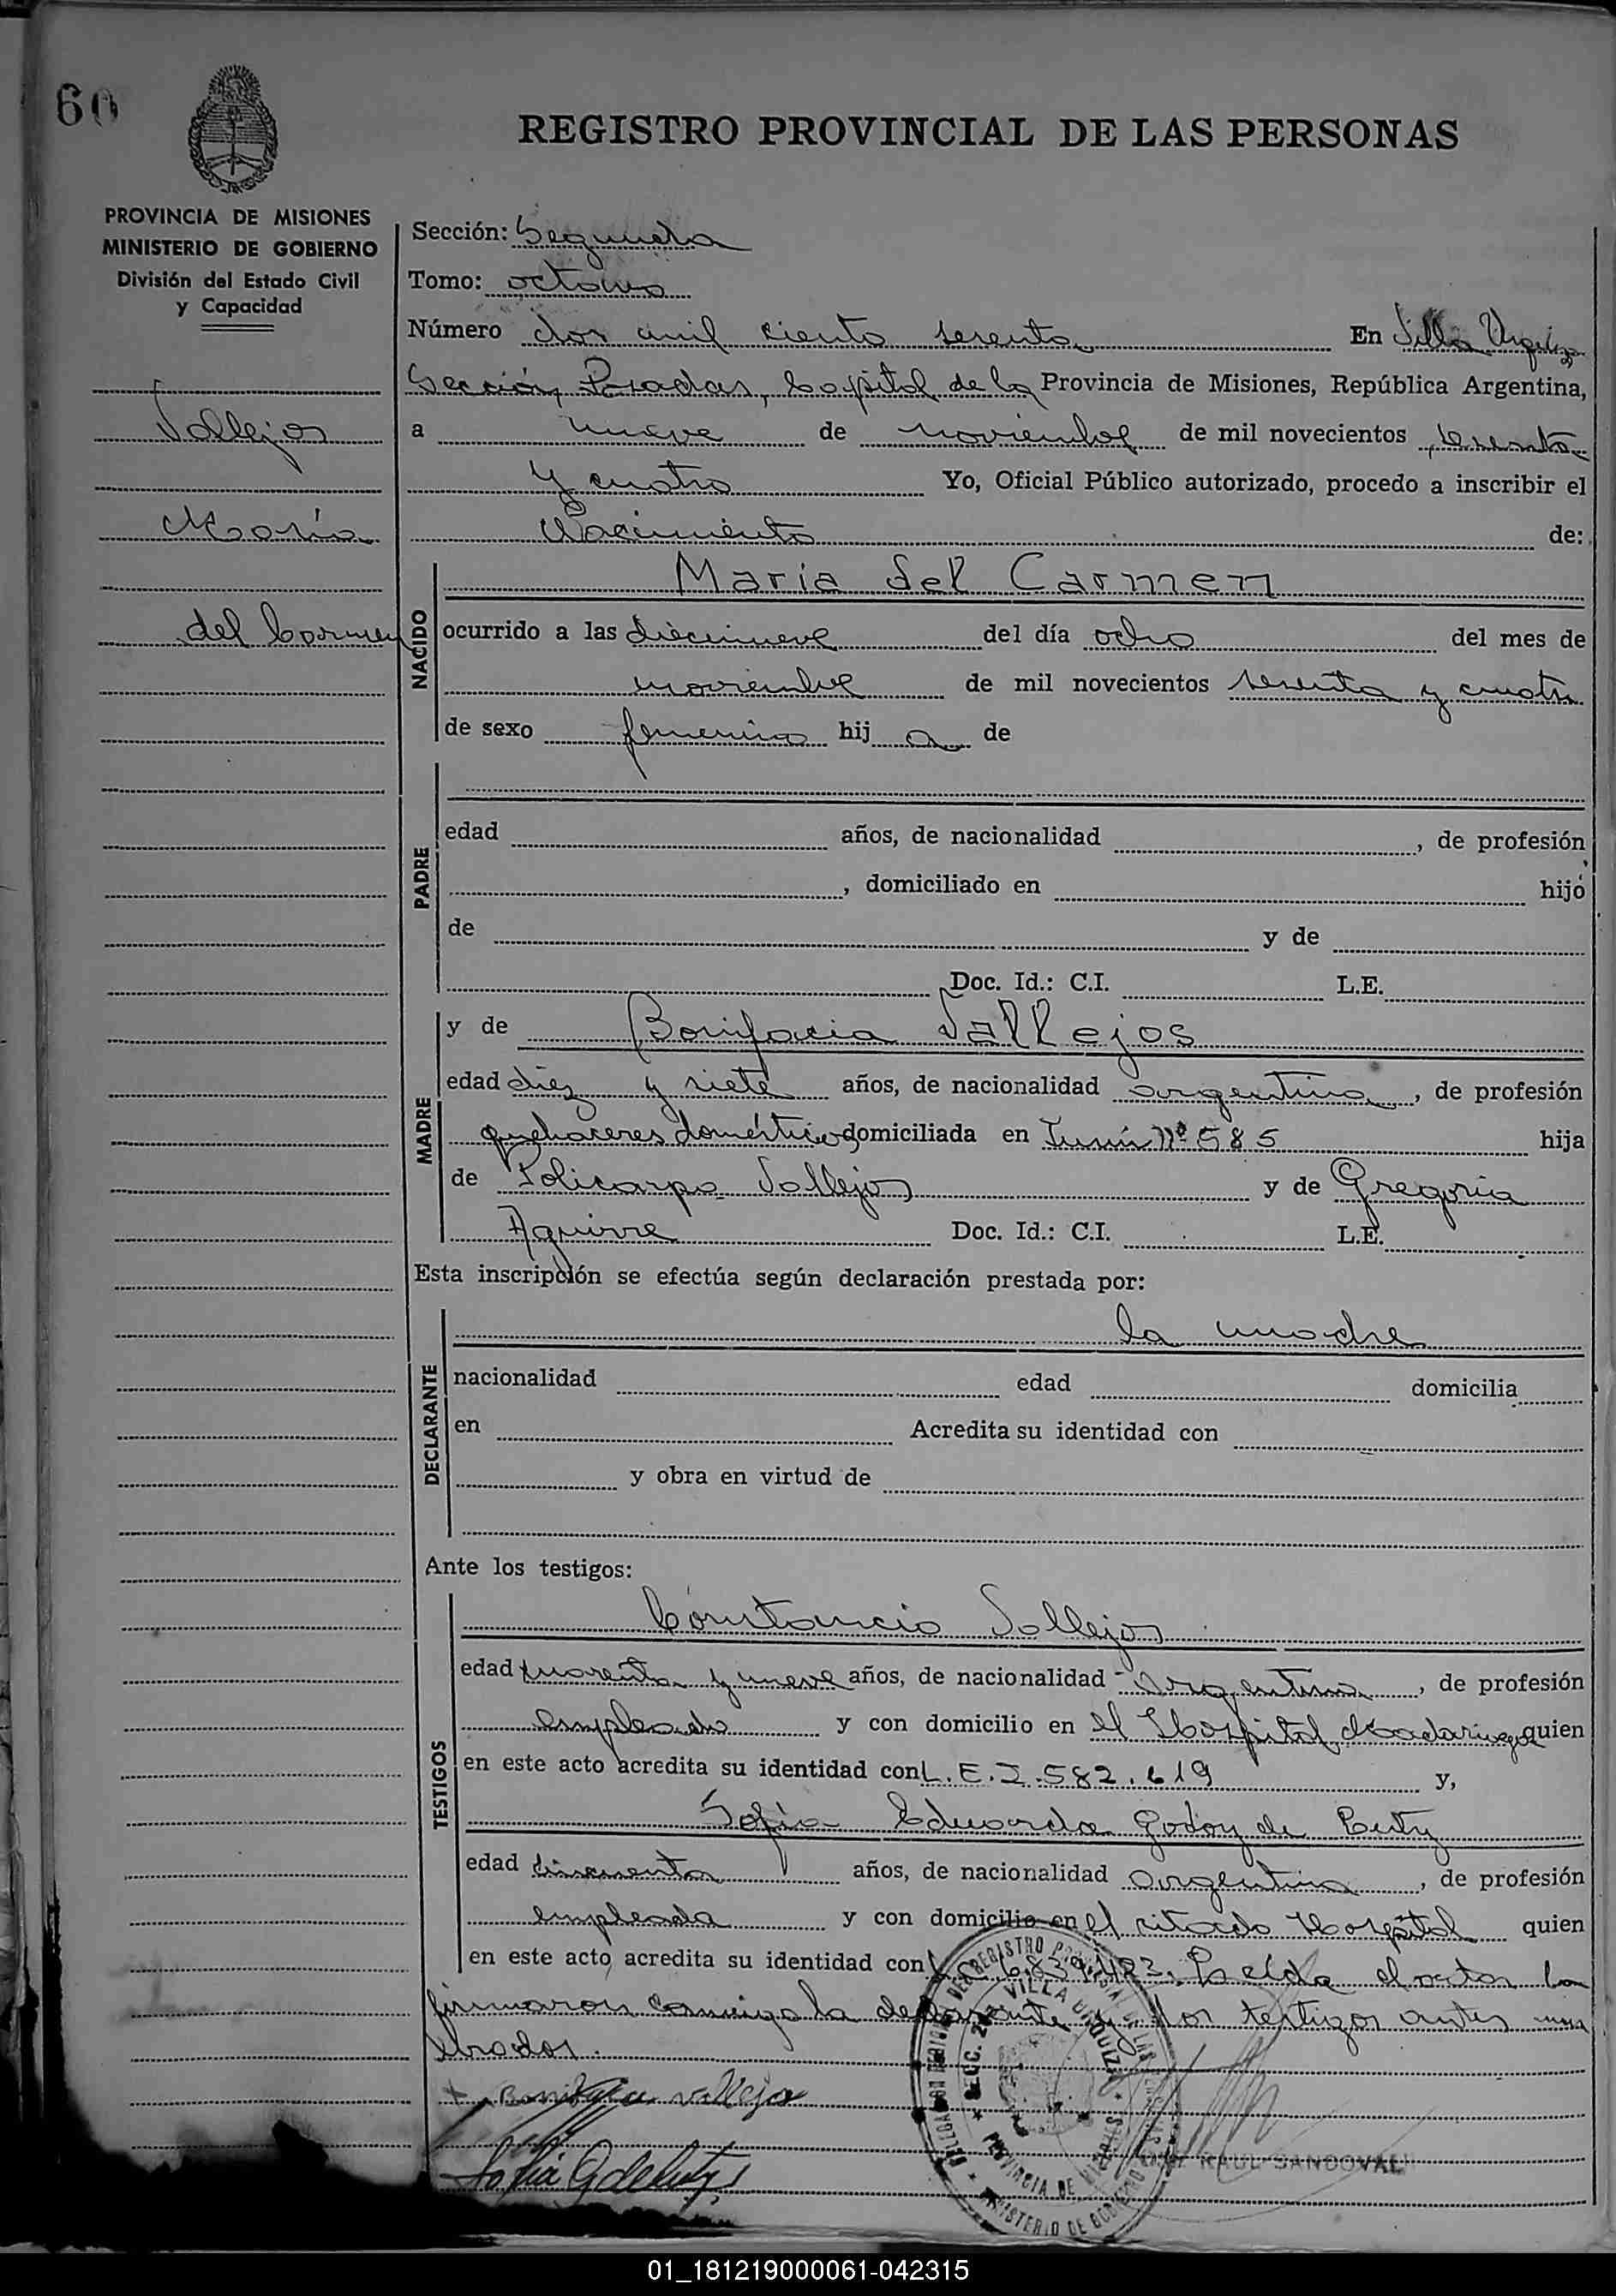 60
REGISTRO PROVINCIAL DE LAS PERSONAS
PROVINCIA DE MISIONES
MINISTERIO DE GOBIERNO
División del Estado Civil
y Capacidad
Vallejos
María
del Carmen
Sección: Segunda
Tomo: octavo
Número dos mil ciento sesenta En Villa Urquiza
Sección Posadas, Capital de la Provincia de Misiones, República Argentina,
a nueve de noviembre de mil novecientos sesenta
y cuatro Yo, Oficial Público autorizado, procedo a inscribir el
Nacimiento de:
NACIDO
María del Carmen
ocurrido a las diecinueve del día ocho del mes de
noviembre de mil novecientos sesenta y cuatro
de sexo femenino hij a de
PADRE
edad años, de nacionalidad , de profesión
, domiciliado en hijo
de y de
Doc. Id.: C.I. L.E.
MADRE
y de Bonifacia Vallejos
edad diez y siete años, de nacionalidad argentina, de profesión
quehaceres domésticos domiciliada en Junín Nº 585 hija
de Policarpo Vallejos y de Gregoria
Aguirre Doc. Id.: C.I. L.E.
Esta inscripción se efectúa según declaración prestada por:
DECLARANTE
la madre
nacionalidad edad domicilia
en Acredita su identidad con
y obra en virtud de
Ante los testigos:
TESTIGOS
Constancio Vallejos
edad cuarenta y nueve años, de nacionalidad argentina, de profesión
empleado y con domicilio en el Hospital Madariaga quien
en este acto acredita su identidad con L.E. 2.582.619 y,
Sofía Eduarda Godoy de
edad cincuenta años, de nacionalidad argentina, de profesión
empleada y con domicilio en el citado Hospital quien
en este acto acredita su identidad con Leída el acta la
firmaron conmigo la declarante y los testigos antes nom
brados.
Bonifacia Vallejos
Sofia G de
REGISTRO PROVINCIAL DE LAS
SECC. 2da VILLA URQUIZA
PROVINCIA DE MISIONES
MINISTERIO DE GOBIERNO
RAUL SANDOVAL
01_181219000061-042315